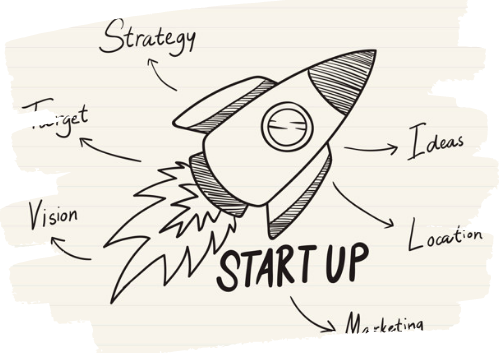 Strategy
Target
Ideas
Vision
Location
START UP
Marketing